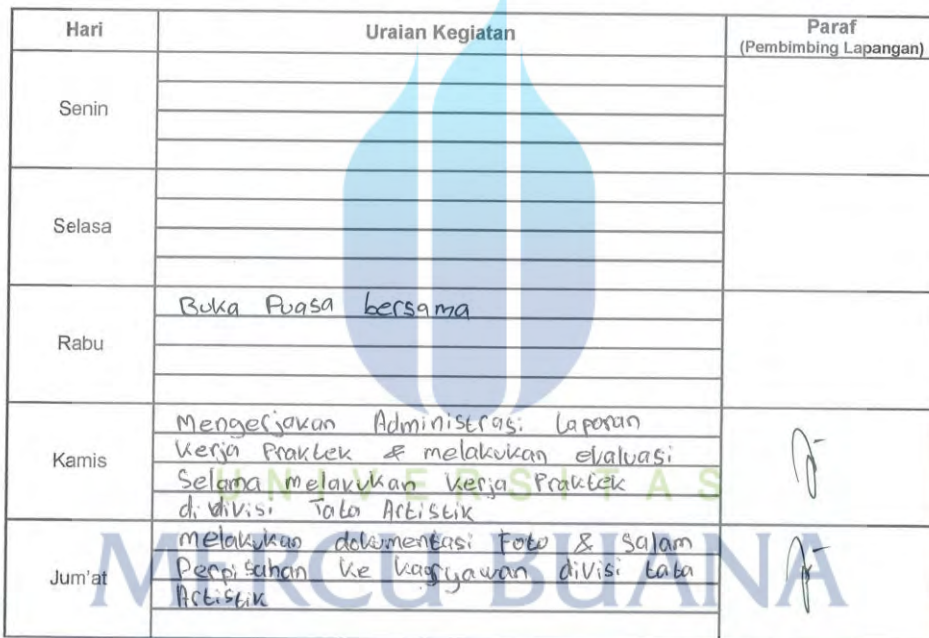 Hari Uraian Kegiatan Paraf
(Pembimbing Lapangan)
Senin
Selasa
Rabu
Buka Puasa bersama
Kamis
Mengerjakan Administrasi Laporan
Kerja Praktek & melakukan evaluasi
Selama melakukan Kerja Praktek
di divisi Tata Artistik
UNIVERSITAS
Jum'at
melakukan dokumentasi Foto & Salam
Perpisahan ke kagryawan divisi tata
Artistik
MERCU BUANA